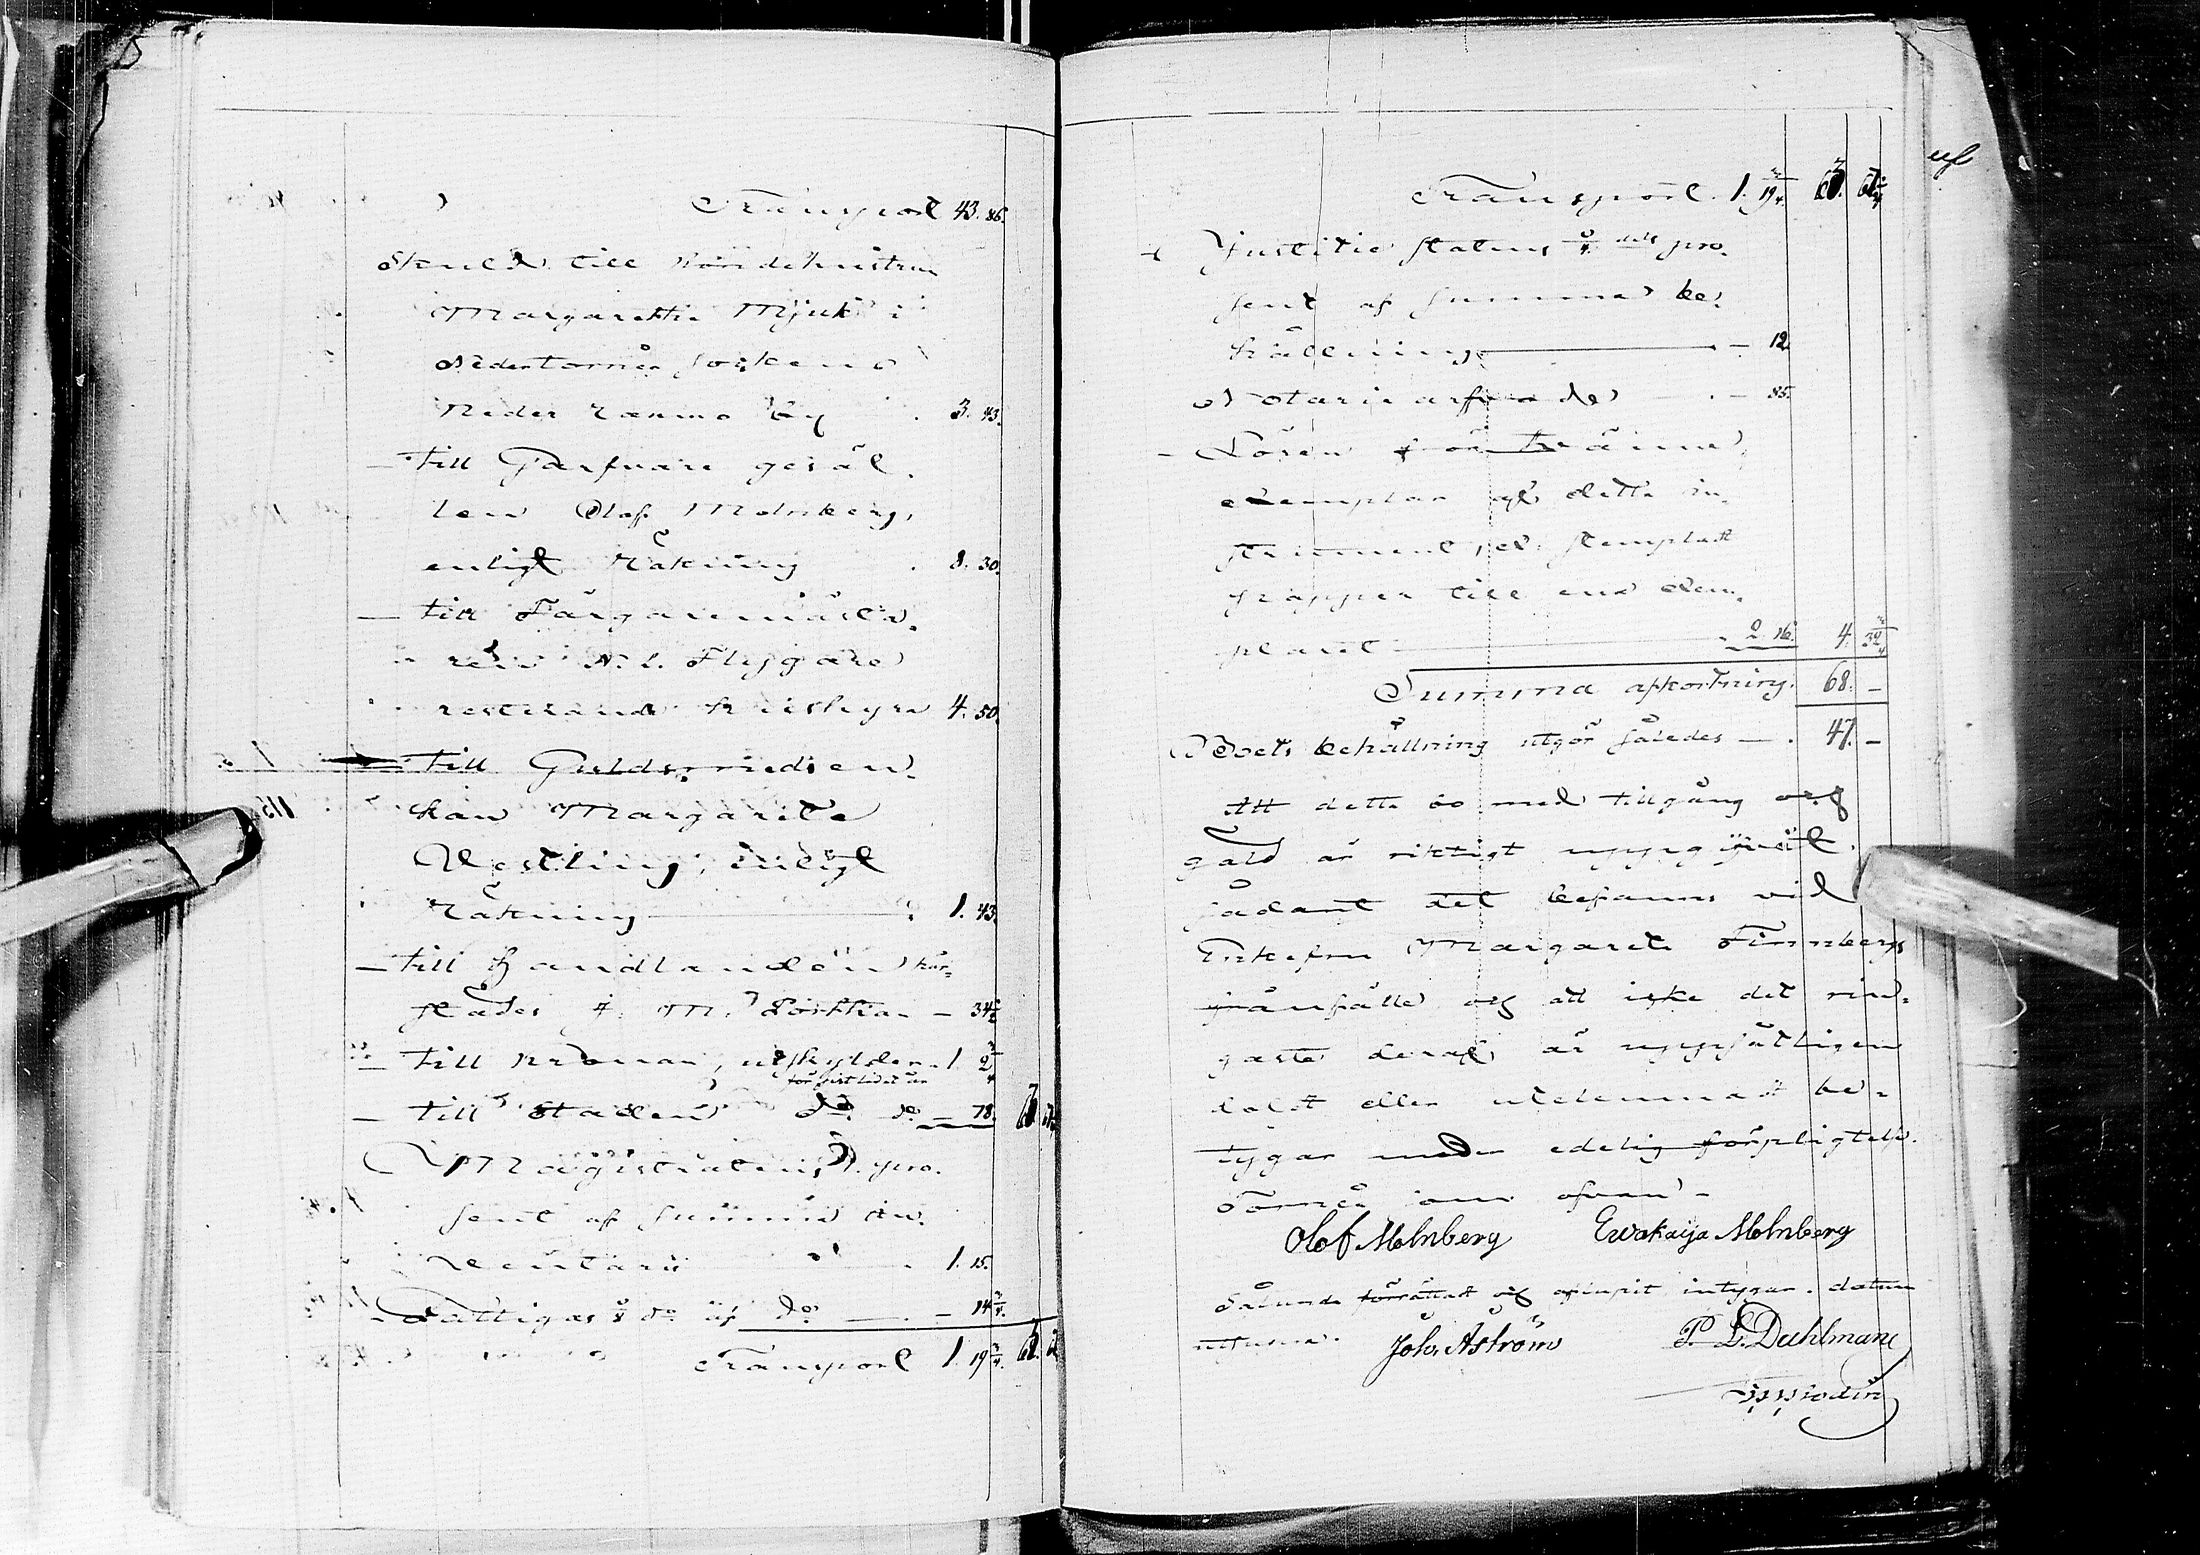 Transport 43. 86.
Skuld till Bondehustrun
Margaretha Mjuk i
Neder torneå Socken o
Neder Vænno by . 3. 43.
— till Garfvare gesäl.
len Olof Molnberg,
enligt Räkning . 8. 30.
— till Färgaremäste.
ren N. L. Flyggare
resterande hushyra 4. 50.
— till Guldsmedsen.
kan Margareta
Vestling, enligt
Räkning 1. 43.
— till Handlanden här-
städes J. M. — 34½
— till Kronan, utskylder 1. 2¾
för sist lidet år
— till Staden do. do — 78. 63. 67¾
Magistratens 1. pro.
sent af Summa In.
ventarii 1. 15.
Fattigas ⅛ do af do — 14¾.
Transport 1. 19¾. 63. 67¾
Transport. 1. 19¾. 63. 67¾
Justitie Statens ¼ dels pro.
sent af Summa be.
hållning — 12
Notarie arfvode — 85.
Lösen för tvänne
exemplar af detta in.
strument, med stempladt
papper till ena exem.
plaret 2. 16. 4. 32¾
Summa afkortning. 68. —
Boets behållning utgör således — . 47. —
Att detta bo med tillgång och
gäld är riktigt uppgifvit
sådant det befanns vid
Enkefru Margareta Finnbergs
frånfälle och att icke det rin-
gaste deraf är uppsåtligen
doldt eller utelemnadt be-
tygar under edelig förpligtelse.
Torneå som ofvan —
Olof Molnberg Ewakajsa Molnberg
Sålunda förrättadt och aflupit intygar. datum
utsupra. Joh. Åström P. L. Dahlman